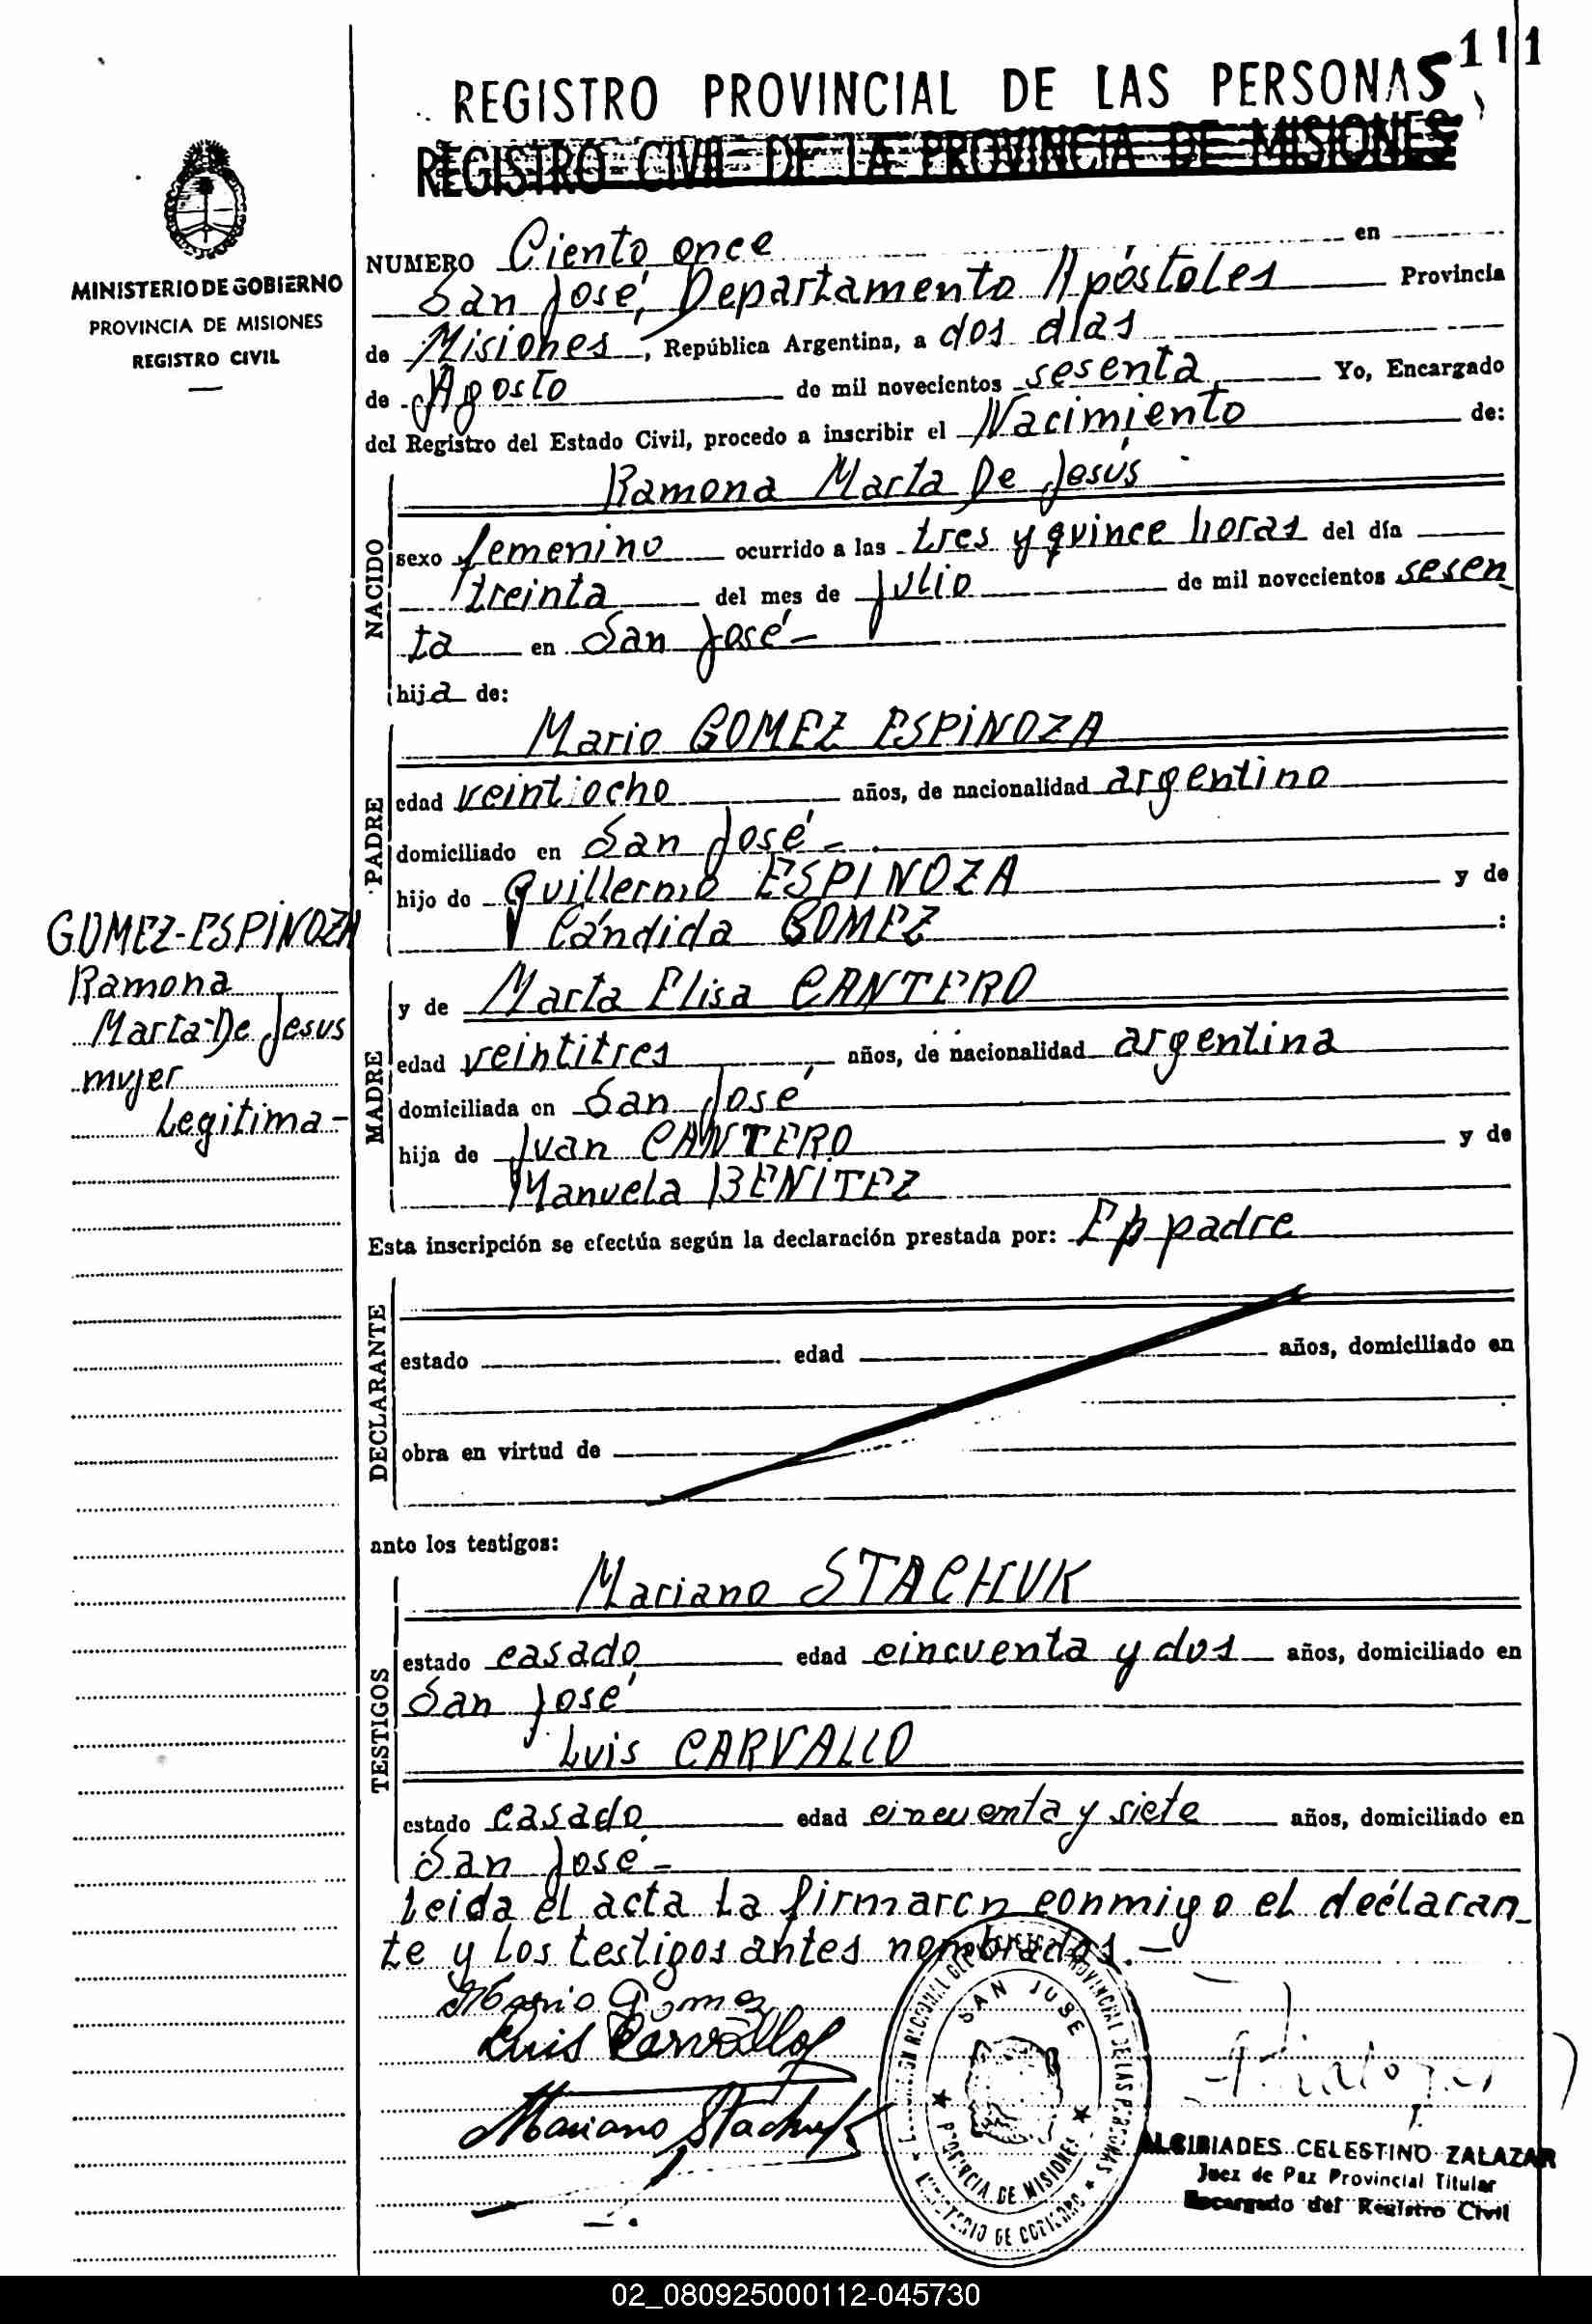 111
REGISTRO PROVINCIAL DE LAS PERSONAS
REGISTRO CIVIL DE LA PROVINCIA DE MISIONES
MINISTERIO DE GOBIERNO
PROVINCIA DE MISIONES
REGISTRO CIVIL
NUMERO Ciento once en
San José, Departamento Apóstoles Provincia
de Misiones, República Argentina, a dos días
de Agosto de mil novecientos sesenta Yo, Encargado
del Registro del Estado Civil, procedo a inscribir el Nacimiento de:
NACIDO
Ramona Marta De Jesús
sexo femenino ocurrido a las tres y quince horas del día
treinta del mes de julio de mil novecientos sesen
ta en San José-
hija de:
PADRE
Mario GOMEZ ESPINOZA
edad veintiocho años, de nacionalidad argentino
domiciliado en San José-
hijo de Guillermo ESPINOZA y de
Cándida GOMEZ :
GOMEZ-ESPINOZA
Ramona
Marta De Jesus
mujer
Legitima-
MADRE
y de Marta Elisa CANTERO
edad veintitres años, de nacionalidad argentina
domiciliada en San José
hija de Juan CANTERO y de
Manuela BENITEZ
Esta inscripción se efectúa según la declaración prestada por: padre
DECLARANTE
estado edad años, domiciliado en
obra en virtud de
ante los testigos:
TESTIGOS
Mariano STACHUK
estado casado edad cincuenta y dos años, domiciliado en
San José
Luis CARVALLO
estado casado edad cincuenta y siete años, domiciliado en
San José-
Leida el acta la firmaron conmigo el declaran_
te y los testigos antes nombrados.-
Mario Gomez
Luis Carvallo
Mariano Stachuk
SAN JOSE
PROVINCIA DE MISIONES
MINISTERIO DE GOBIERNO
ALCIBIADES CELESTINO ZALAZAR
Juez de Paz Provincial Titular
Encargado del Registro Civil
02_080925000112-045730